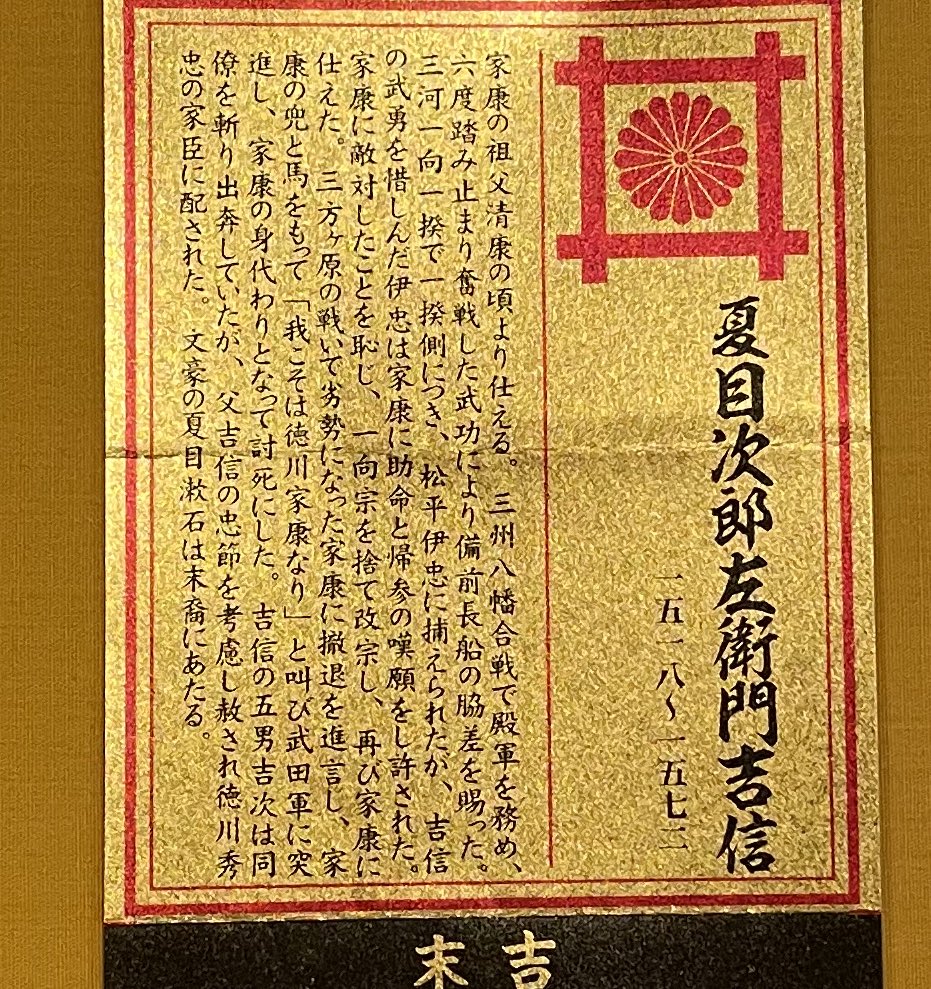 夏目次郎左衛門吉信
一五一八〜一五七二
家康の祖父清康の頃より仕える。三州八幡合戦で殿軍を務め、
六度踏み止まり奮戦した武功により備前長船の脇差を賜った。
三河一向一揆で一揆側につき、松平伊忠に捕えられたが、吉信
の武勇を惜しんだ伊忠は家康に助命と帰参の嘆願をし許された。
家康に敵対したことを恥じ、一向宗を捨て改宗し、再び家康に
仕えた。三方ヶ原の戦いで劣勢になった家康に撤退を進言し、家
康の兜と馬をもって「我こそは徳川家康なり」と叫び武田軍に突
進し、家康の身代わりとなって討死にした。吉信の五男吉次は同
僚を斬り出奔していたが、父吉信の忠節を考慮し赦され徳川秀
忠の家臣に配された。文豪の夏目漱石は末裔にあたる。
末吉